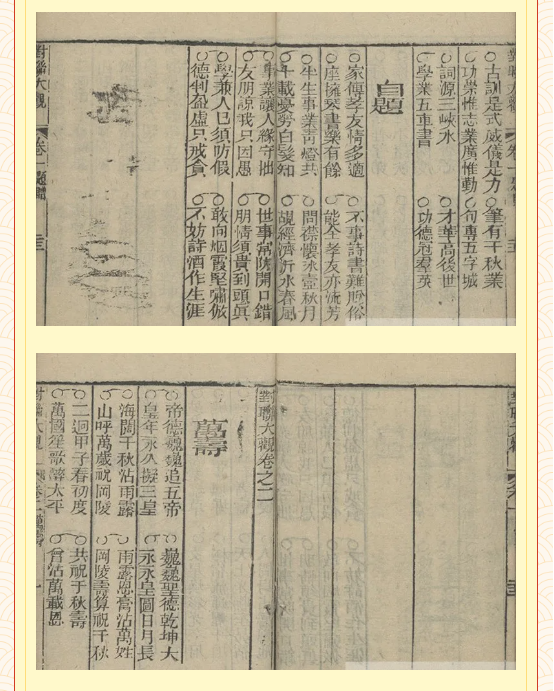 古訓是式威儀是力　筆有千秋業
功崇惟志業廣惟勤　句專五字城
詞源三峽水　才華高後世
學業五車書　功德冠羣英
自題
家傳孝友情多適　不事詩書難脫俗
座擁琴書樂有餘　能全孝友亦流芳
半生事業靑燈共　開襟懷冰壺秋月
千載憂勞白髮知　覘經濟沂水春風
事業讓人緣守拙　世事常陝開口錯
友朋諒我只因愚　朋情須貴到頭眞
學兼人巳須防假　敢向烟霞堅嘯傲
德判盈虛只戒貪　不妨詩酒作生涯
對聯大觀
對聯大觀卷之二
萬壽
帝德巍巍追五帝　巍巍聖德乾坤大
皇年永永擬三皇　永永皇圖日月長
海闊千秋沾雨露　雨露恩膏沾萬姓
山呼萬歲祝岡陵　岡陵壽算祝千秋
二迴甲子春初度　共祝千秋壽
萬國笙歌醉太平　曾沾萬載恩
對聯大觀